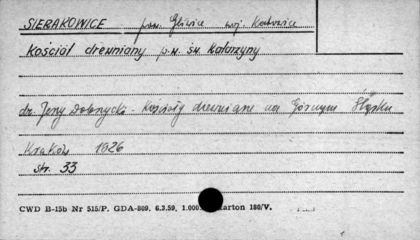 SIERAKOWICE pow. Gliwice woj. Katowice
Kościół drewniany p.w. św. Katarzyny
dr. Jerzy Dobrzycki - Kościoły drewniane na Górnym Śląsku
Kraków 1926
str. 33
CWD B-15b Nr 515/P. GDA-809. 6.3.59, 1.000 karton 180/V.